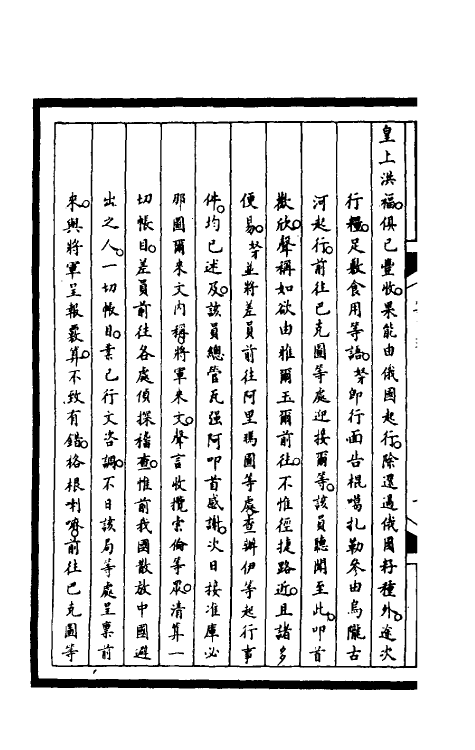 皇上洪福。俱已豐收。果能由俄國起行。除還過俄國籽種外。途次
行糧。足敷食用等語。棼即行面告棍噶扎勒參由烏隴古
河起行。前往巴克圖等處迎接爾等。該員聽聞至此。叩首
歡欣。聲稱如欲由雅爾玉爾前往。不惟徑捷路近。且諸多
便易。棼並將差員前往阿里瑪圖等處。查辦伊等起行事
件。均已述及。該員總管瓦强阿叩首感謝。次日接准庫必
那圖爾來文內稱。將軍來文。聲言收攬索倫等眾。清算一
切帳目。差員前往各處偵探稽查。惟前我國散放中國避
出之人。一切帳目。業已行文咨調。不日該局等處呈稟前
來。與將軍呈報覈算。不致有錯。格根喇嘛。前往巴克圖等